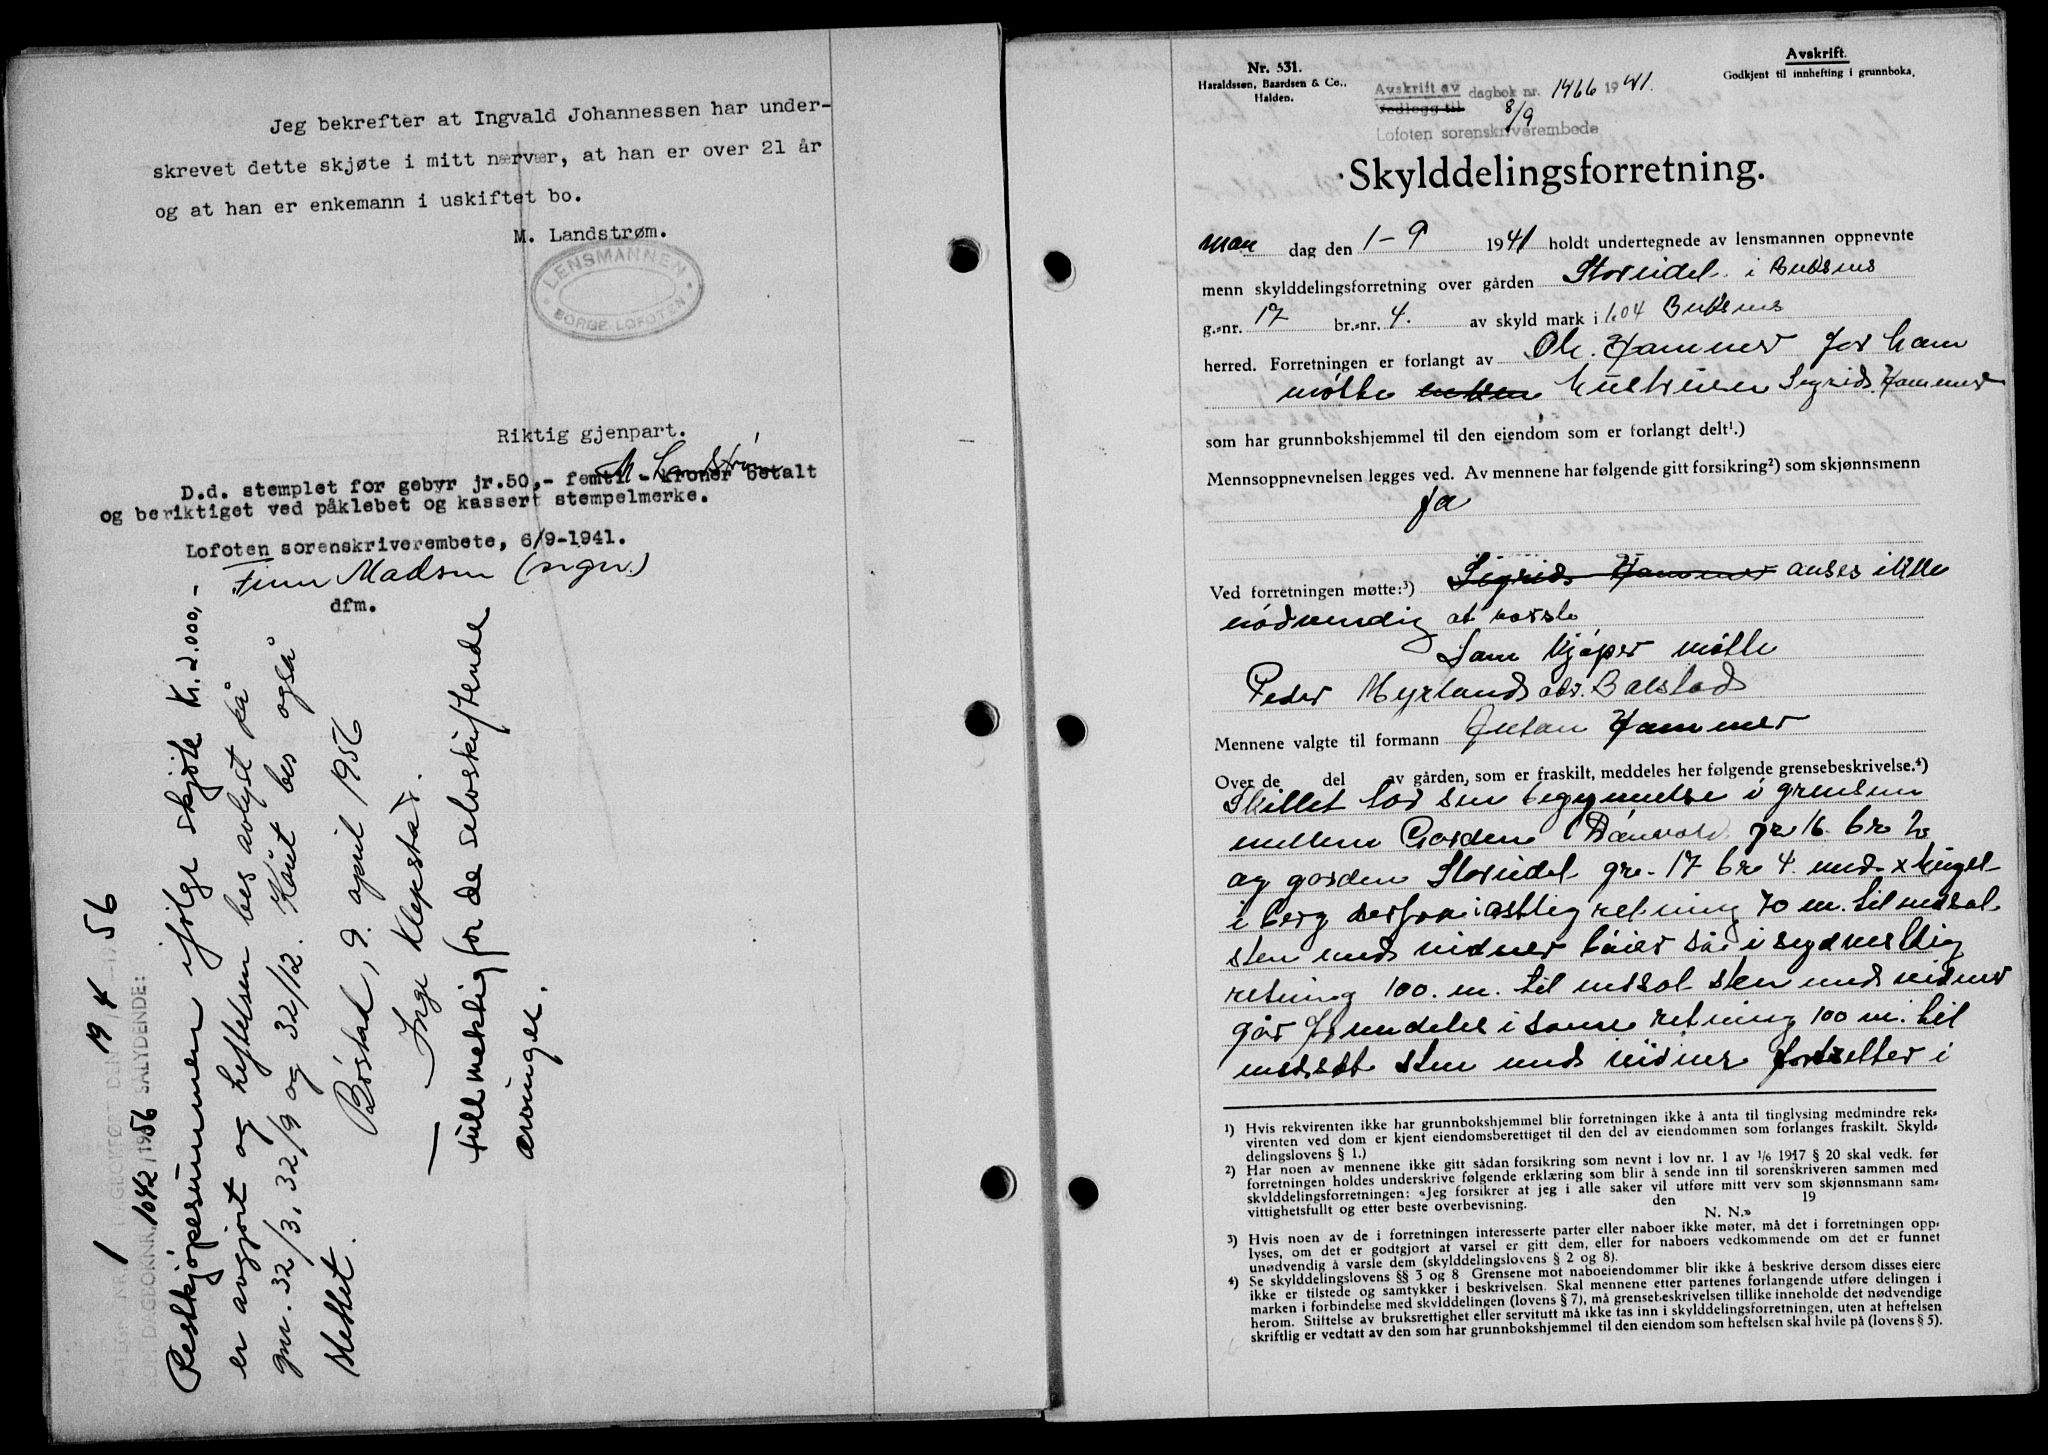 Jeg bekrefter at Ingvald Johannessen har under-
skrevet dette skjøte i mitt nærvær, at han er over 21 år
og at han er enkemann i uskiftet bo.
M. Landstrøm.
LENSMANNEN
BORGE LOFOTEN
Riktig gjenpart.
M Landstrøm
D.d. stemplet for gebyr jr.50,- femti - kroner betalt
og beriktiget ved påklebet og kassert stempelmerke.
Lofoten sorenskriverembete, 6/9-1941.
Finn Madsen (sign.)
dfm.
DAGBOKFØRT DEN 19/4 1956
DAGBOKNR. 1042/1956 SÅLYDENDE:
Restkjøpesummen ifølge skjøte kr. 2.000,-
er avgjort og heftelsen bes avlyst på
gnr. 32/3, 32/9 og 32/12. Kaut bes også
slettet.
Bøstad, 9. april 1956
— Inge Klepstad.
fullmektig for de selvskiftende
arvinger.
Nr. 531.
Haraldssen, Baardsen & Co.,
Halden.
Avskrift.
Godkjent til innhefting i grunnboka.
Avskrift av dagbok nr. 1466 1941.
Vedlegg til 8/9
Lofoten sorenskriverembede
Skylddelingsforretning.
Man dag den 1-9 1941 holdt undertegnede av lensmannen oppnevnte
menn skylddelingsforretning over gården Storeidet i Buksnes
g.-nr. 17 br.-nr. 4. av skyld mark i 1.04 Buksnes
herred. Forretningen er forlangt av Ole Hammer for ham
møtte enken Hustruen Sigrid Hammer
som har grunnbokshjemmel til den eiendom som er forlangt delt¹.)
Mennsoppnevnelsen legges ved. Av mennene har følgende gitt forsikring²) som skjønnsmenn
Ja
Ved forretningen møtte:³) Sigrid Hammer anses ikke
nødvendig at varsle
Som kjøper møtte
Peder Myrland adr. Balstad
Mennene valgte til formann Anton Hammer
Over de del av gården, som er fraskilt, meddeles her følgende grensebeskrivelse.⁴)
Skillet tar sin begynnelse i grensen
mellem Garden gr 16. br 2
og garden Storeidet gr. 17 br 4. med x huget
i berg derfra i østlig retning 70 m. til nedsat
sten med vidner bøier så i sydvestlig
retning 100. m. til nedsat sten med vidner
går fremdeles i samme retning 100 m. til
nedsat sten med vidner fortsetter i
1) Hvis rekvirenten ikke har grunnbokshjemmel blir forretningen ikke å anta til tinglysing medmindre rek-
virenten ved dom er kjent eiendomsberettiget til den del av eiendommen som forlanges fraskilt. Skyld-
delingslovens § 1.)
2) Har noen av mennene ikke gitt sådan forsikring som nevnt i lov nr. 1 av 1/6 1917 § 20 skal vedk. før
forretningen holdes underskrive følgende erklæring som blir å sende inn til sorenskriveren sammen med
skylddelingsforretningen: «Jeg forsikrer at jeg i alle saker vil utføre mitt verv som skjønnsmann sam-
vittighetsfullt og etter beste overbevisning. den 19
N. N.»
3) Hvis noen av de i forretningen interesserte parter eller naboer ikke møter, må det i forretningen opp-
lyses, om det er godtgjort at varsel er gitt dem, eller for naboers vedkommende om det er funnet
unødvendig å varsle dem (skylddelingslovens § 2 og 8).
4) Se skylddelingslovens §§ 3 og 8 Grensene mot naboeiendommer blir ikke å beskrive dersom disses eiere
ikke er tilstede og samtykker i beskrivelsen. Skal mennene etter partenes forlangende utføre delingen i
marken i forbindelse med skylddelingen (lovens § 7), må grensebeskrivelsen tillike inneholde det nødvendige
herom. Stiftelse av bruksrettighet eller servitutt må ikke tas inn i skylddelingsforretningen, uten at heftelsen
skriftlig er vedtatt av den som har grunnbokshjemmel til den eiendom som heftelsen skal hvile på (lovens § 5).